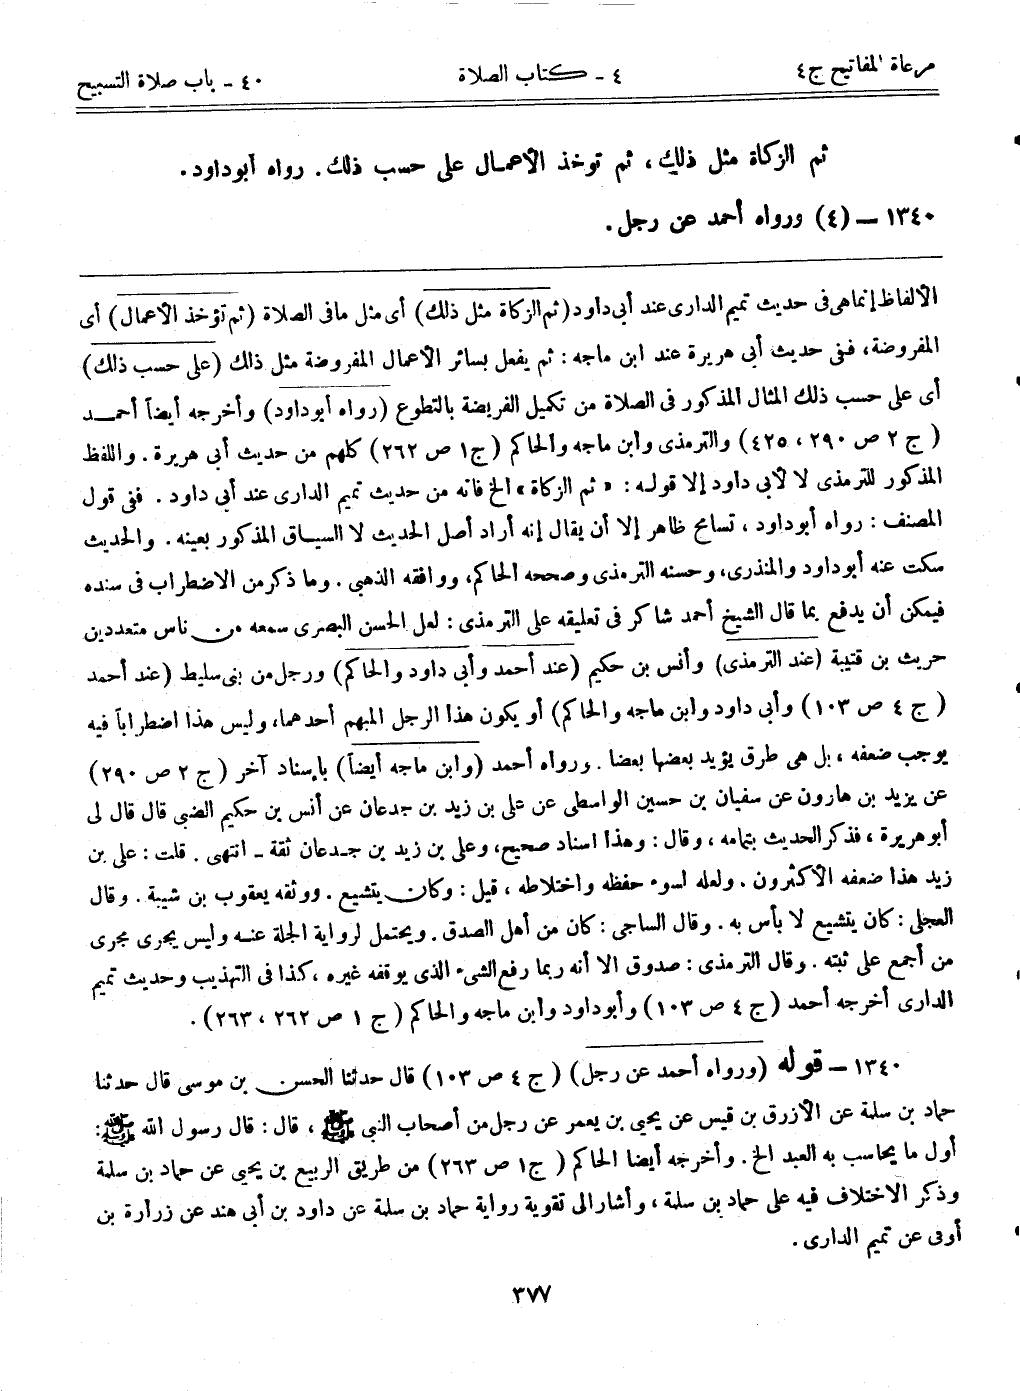 مرعاة المفاتيح ج٤ ٤ - كتاب الصلاة ٤٠ - باب صلاة التسبيح
ثم الزكاة مثل ذلك، ثم توخذ الأعمال على حسب ذلك. رواه أبوداود.
١٣٤٠ – (٤) ورواه أحمد عن رجل.
الألفاظ إنماهى فى حديث تميم الدارى عند أبى داود (ثم الزكاة مثل ذلك) أى مثل مافى الصلاة (ثم تؤخذ الأعمال) أى
المفروضة، ففى حديث أبى هريرة عند ابن ماجه: ثم يفعل بسائر الأعمال المفروضة مثل ذلك (على حسب ذلك)
أى على حسب ذلك المثال المذكور فى الصلاة من تكميل الفريضة بالتطوع (رواه أبوداود) وأخرجه أيضاً أحمد
(ج ٢ ص ٢٩٠، ٤٢٥) والترمذى وابن ماجه والحاكم (ج١ ص ٢٦٢) كلهم من حديث أبى هريرة. واللفظ
المذكور للترمذى لا لأبى داود إلا قوله: «ثم الزكاة» الخ فانه من حديث تميم الدارى عند أبى داود. ففى قول
المصنف: رواه أبوداود، تسامح ظاهر إلا أن يقال إنه أراد أصل الحديث لا السياق المذكور بعينه. والحديث
سكت عنه أبوداود والمنذرى، وحسنه الترمذى وصححه الحاكم، ووافقه الذهبى. وما ذكر من الاضطراب فى سنده
فيمكن أن يدفع بما قال الشيخ أحمد شاكر فى تعليقه على الترمذى: لعل الحسن البصرى سمعه من ناس متعددين
حريث بن قتيبة (عند الترمذى) وأنس بن حكيم (عند أحمد وأبى داود والحاكم) ورجل من بنى سليط (عند أحمد
(ج ٤ ص ١٠٣) وأبى داود وابن ماجه والحاكم) أو يكون هذا الرجل المبهم أحدهما، وليس هذا اضطراباً فيه
يوجب ضعفه، بل هى طرق يؤيد بعضها بعضا. ورواه أحمد (وابن ماجه أيضاً) بإسناد آخر (ج ٢ ص ٢٩٠)
عن يزيد بن هارون عن سفيان بن حسين الواسطى عن على بن زيد بن جدعان عن أنس بن حكيم الضبى قال قال لى
أبوهريرة، فذكر الحديث بتمامه، وقال: وهذا اسناد صحيح، وعلى بن زيد بن جدعان ثقة - انتهى. قلت: على بن
زيد هذا ضعفه الأكثرون. ولعله لسوء حفظه واختلاطه، قيل: وكان يتشيع. ووثقه يعقوب بن شيبة. وقال
العجلى: كان يتشيع لا بأس به. وقال الساجى: كان من أهل الصدق. ويحتمل لرواية الجلة عنه وليس يجرى مجرى
من أجمع على ثبته. وقال الترمذى: صدوق الا أنه ربما رفع الشىء الذى يوقفه غيره، كذا فى التهذيب وحديث تميم
الدارى أخرجه أحمد (ج ٤ ص ١٠٣) وأبوداود وابن ماجه والحاكم (ج ١ ص ٢٦٢، ٢٦٣).
١٣٤٠ – قوله (ورواه أحمد عن رجل) (ج ٤ ص ١٠٣) قال حدثنا الحسن بن موسى قال حدثنا
حماد بن سلمة عن الأزرق بن قيس عن يحيى بن يعمر عن رجل من أصحاب النبى ﷺ، قال: قال رسول الله ﷺ:
أول ما يحاسب به العبد الخ. وأخرجه أيضا الحاكم (ج١ ص ٢٦٣) من طريق الربيع بن يحيى عن حماد بن سلمة
وذكر الاختلاف فيه على حماد بن سلمة، وأشار الى تقوية رواية حماد بن سلمة عن داود بن أبى هند عن زرارة بن
أوفى عن تميم الدارى.
٣٧٧